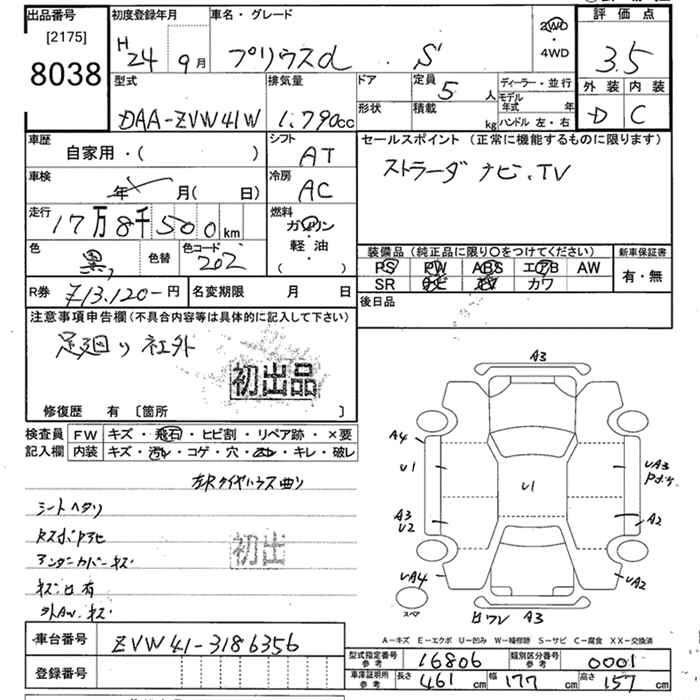 出品番号
[2175]
8038
初度登録年月
H24 9月
車名・グレード
プリウスα S
2WD
・
4WD
評価点
3.5
外装 内装
D C
型式
DAA-ZVW41W
排気量
1.790cc
ドア
形状
定員 5人
積載 kg
ディーラー・並行
モデル年式 年
ハンドル 左・右
車歴
自家用・( )
車検
年 月(日)
走行
17万8千500km
色
黒
色替
色コード
202
シフト
AT
冷房
AC
燃料
ガソリン
・
軽・油
( )
セールスポイント (正常に機能するものに限ります)
ストラーダ ナビ、TV
装備品 (純正品に限り〇をつけてください)
PS PW ABS エアB AW
SR ナビ TV カワ
新車保証書
有・無
後日品
R券 〆13.120-円
名変期限 月 日
注意事項申告欄 (不具合内容等は具体的に記入して下さい)
足廻り社外
初出品
修復歴 有 [箇所 ]
検査員 記入欄
FW キズ・飛石・ヒビ割・リペア跡・×要
内装 キズ・汚レ・コゲ・穴・スレ・キレ・破レ
シートヘタリ
アンダーカバーキズ
初出
A3
A4
U1
U1
UA3
A3
U2
A2
UA4
UA2
スペア
A3
A-キズ E-エクボ U-凹み W-補修跡 S-サビ C-腐食 XX-交換済
車台番号
ZVW41-3186356
登録番号
型式指定番号 参考 16806
類別区分番号 参考 0001
車庫証明用 参考 長さ 461cm 幅 177cm 高さ 157cm